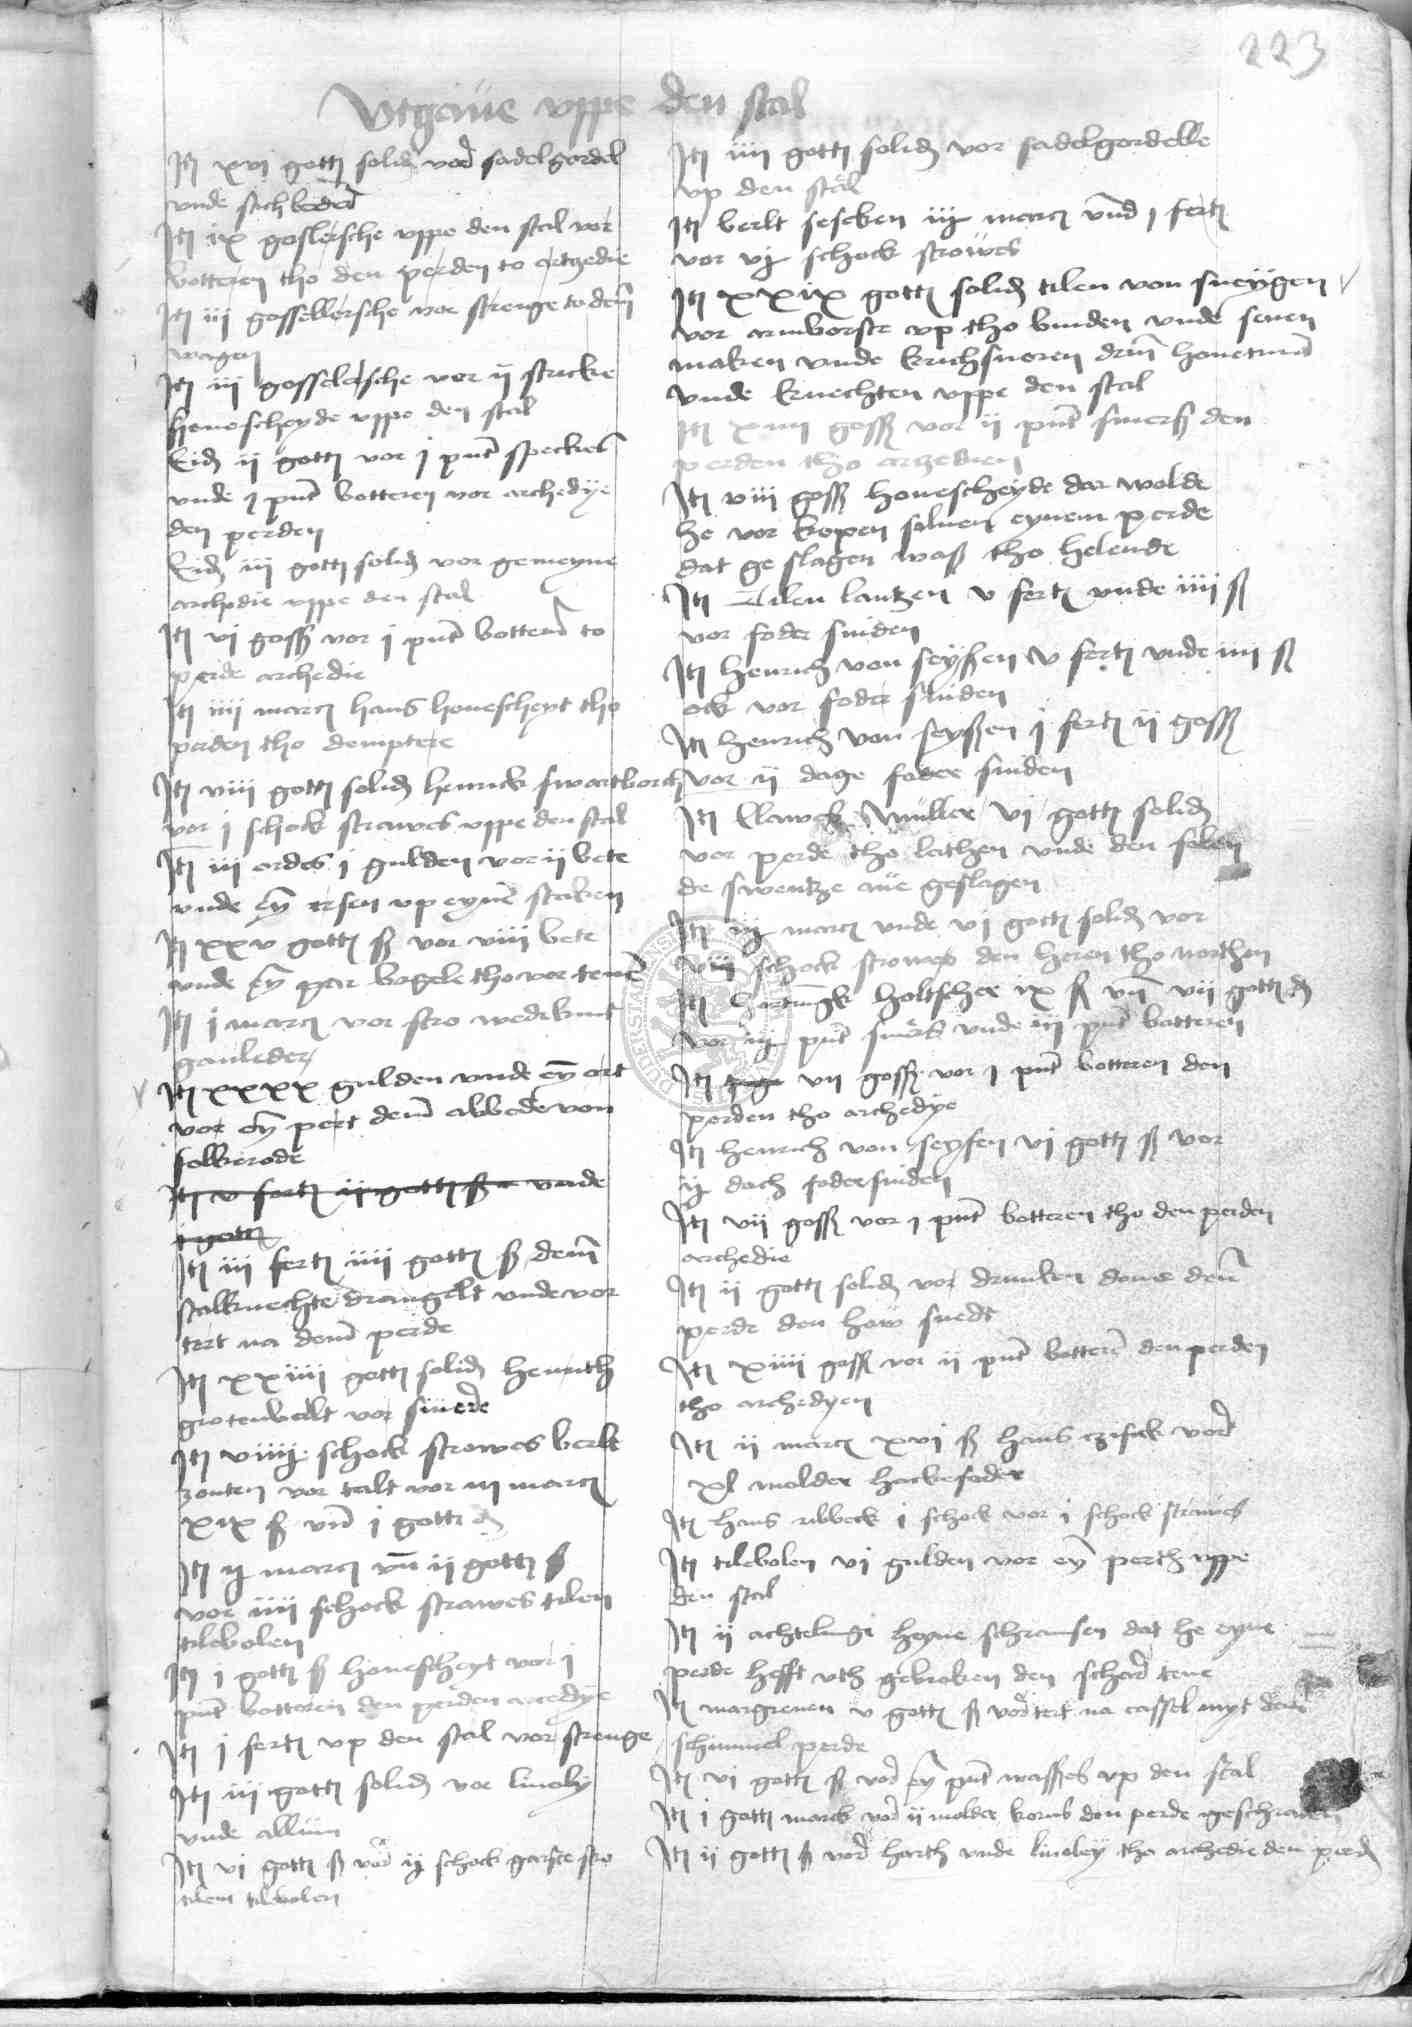 223
Vtgaue vppe den stal
Itē xvi gottē solidē vor sadelgordel
vnde stichledder
Itē ix goslersche vppe den stal vor
botteren tho den perden to artzedie
Itē iij gossellersche vor strenge to dem
wagen
Itē iij gosselersche vor ij stricke
honescheyde vppe den stal
Eidē ij gottē vor j punt speckes
vnde j punt botteren vor archedije
den perden
Eidē iij gottē solidē vor gemeyne
archedie vppe den stal
Itē vj goss vor j punt botterē to
perde archedie
Itē iiij marcē hans honescheyt tho
perden tho demptere
Itē viii gottē solidē henrick swartborch
vor j schock strawes vppe den stal
Itē iii ordes j gulden vor ij bete
vnde eyn ysen vp eynē staken
Itē xxv gottē ß vor viii bete
vnde eyn par bogele tho vor tenē
Itē j marcē vor stro wedekint
ganleder
Itē xxxx gulden vnde eyn ort
vor eyn pert dem abbede von
folkerode
Itē v fertē ij gottē ß vnde
j gottē
Itē iii fertē iiii gottē ß dem
stalknechte drangelt vnde vor
tert na dem perde
Itē xxiiii gottē solidē henrich
grotenbelt vor smede
Itē viiij schock strowes berlt
zonten vor talt vor iij marcē
xix ß vnd j gottē d
Itē ij marcē vn ij gottē ß
vor iiij schock strawes tilen
tilebolen
Itē j gottē ß honescheyt vor j
punt botteren den perden arcedye
Itē j fertē vp den stal vor strenge
Itē iij gottē solidē vor linoly
vnde allun
Itē vi gottē ß vor ij schock garste stro
tilem tilebolen
Itē iiij gottē solidē vor sadelgordelle
vp den stal
Itē berlt sescken iij marcē vnd j fertē
vor vj schock strowes
Itē xxix gottē solidē tilen von sneygen
vor armborste vp tho binden vnde senen
maken vnde kruchsnoren dem honetman
vnde knechten vppe den stal
Itē xiiii goss vor ij punt smers den
perden tho arzedien
Itē viii goss honescheyde dar wolde
he vor kopen saluen eynem perde
dat geslagen waß tho helende
Itē Tilen lantzen v fertē vnde iiii ß
vor foder sniden
Itē henrich von seyssen v fertē vnde iiii ß
ock vor foder sniden
Itē henrich von seyssen j fertē ij goss
vor ij dage foder sniden
Itē Clawes Muller vi gottē solidē
vor perde tho lathen vnde den folen
de swentze aue geslagen
Itē iij marcē vnde vj gottē solidē vor
viii schock strowes den heren tho northen
Itē hartungk holtscher ix ß vn vii gottē d
vor iij punt smers vnde iij punt botteren
Itē vii goss vor j punt botteren den
perden tho archedye
Itē henrich von seysen vi gottē ß vor
ij dach foder sniden
Itē vij goss vor j punt botteren tho den perden
archedie
Itē ij gottē solidē vor drinken dome dem
perde den how snedt
Itē xiiii goss vor ij punt botterē den perden
tho archedyen
Itē ij marcē xvi ß hans czisick vor
xl molder hackefoder
Itē hans ribbeck j schock vor j schock strawes
Itē tilebolen vi gulden vor eyn perth vppe
den stal
Itē ij achtelinge heyne schransen dat he eyne
perde hefft vth gebroken den schard tene
Itē margreuen v gottē ß vortert na cassel myt dem
schimmel perde
Itē vi gottē ß vor eyn punt wasses vp den stal
Itē j gottē marck vor ij molder korns den perde geschrawen
Itē ij gottē ß vor harth vnde linoley tho archedie den perdē